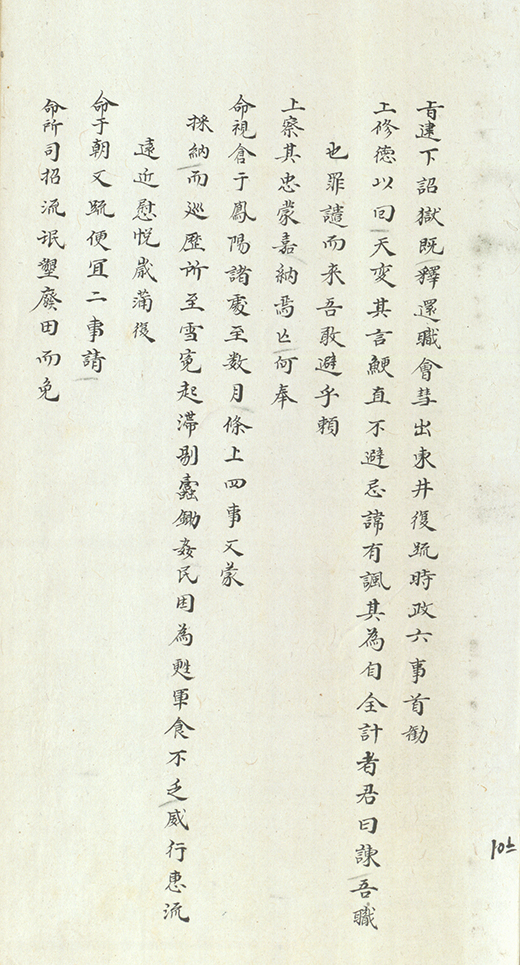 旨逮下詔獄既釋還職會彗出東井復疏時政六事首勸
上修德以回天变其言鯁直不避忌諱有諷其為自全計者君曰諫吾職
也罪譴而来吾敢避乎賴
上察其忠蒙嘉納焉亡何奉
命視倉于鳳陽諸處至数月條上四事又蒙
採納而巡歷所至雪寃起滯剔蠹鋤姦民困為甦軍食不乏威行惠流
遠近慰悅歲滿復
命于朝又疏便宜二事請
命所司招流氓墾廢田而免
10上